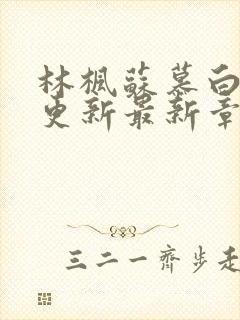 林楓蘇慕白
更新最新章
三二一齊步走